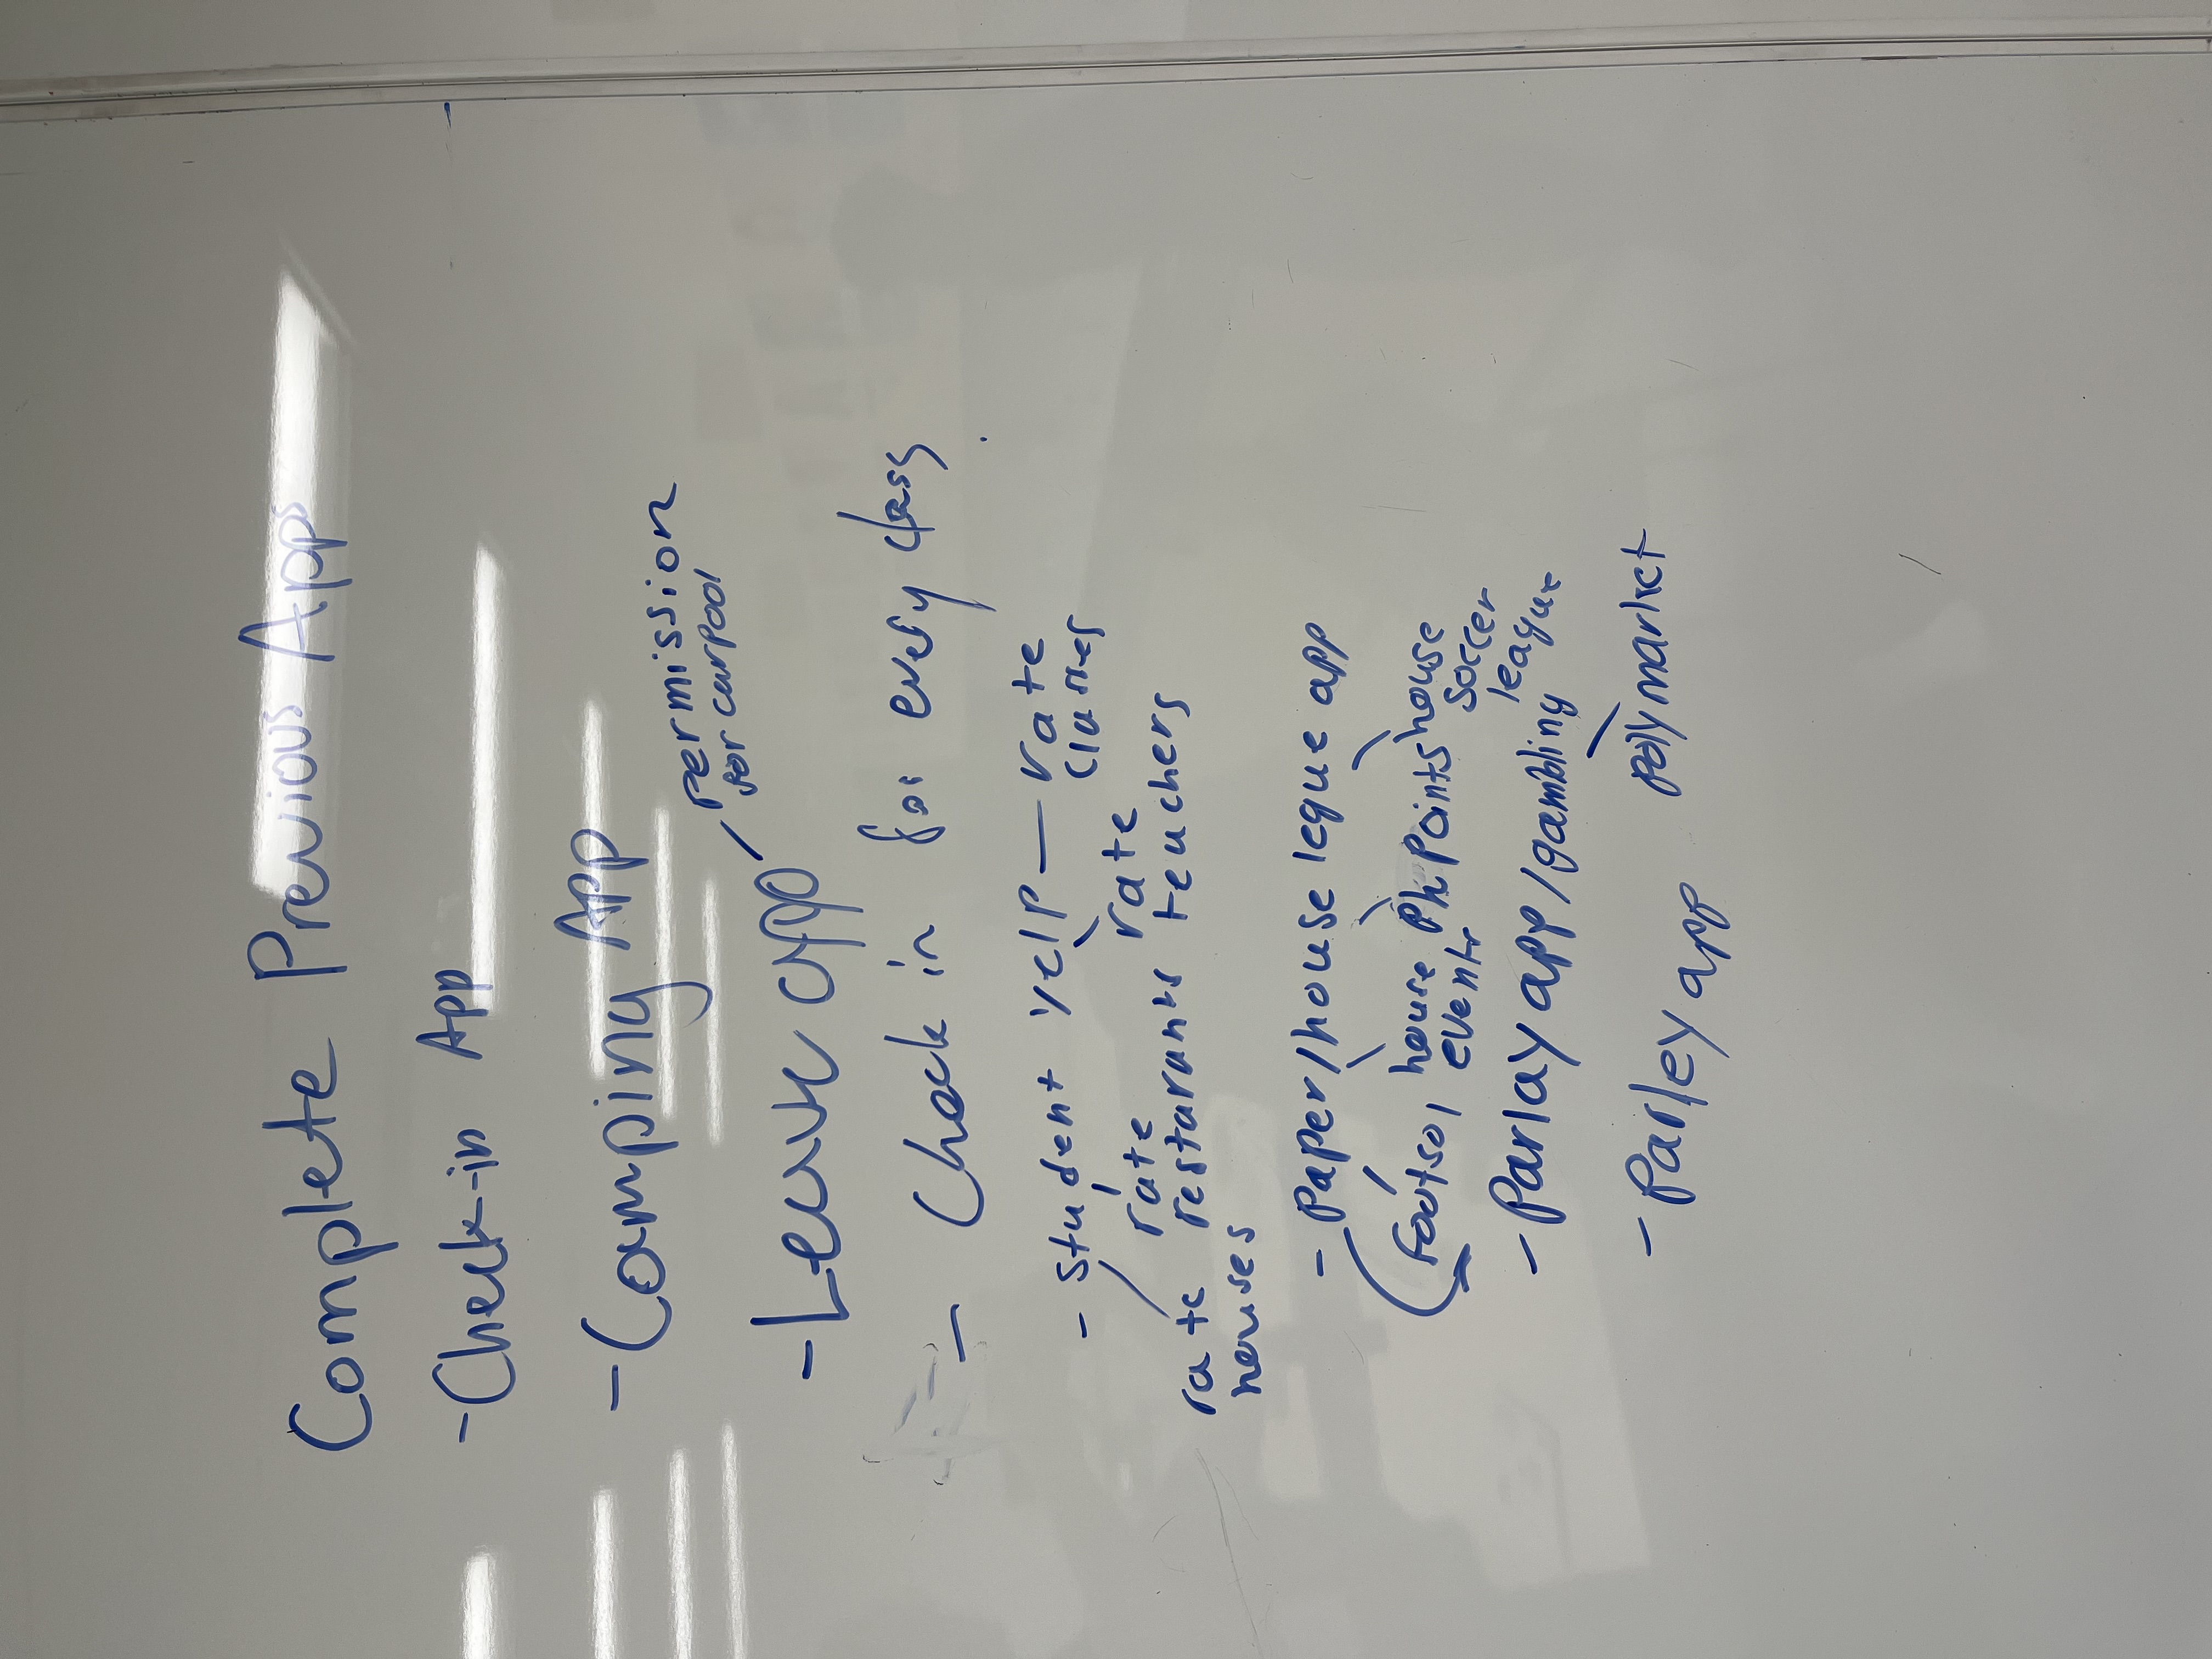 Complete Previous Apps
- Check-in App
- Comping App
- Leave app
permission
for carpool
- Check in for every class
- student yelp — rate
classes
rate
teachers
rate
restarants
rate
houses
- Paper/house leque app
(futsol
house
events
Ph points
house
soccer
league
- Parlay app/gambling
polymarket
- Parley app